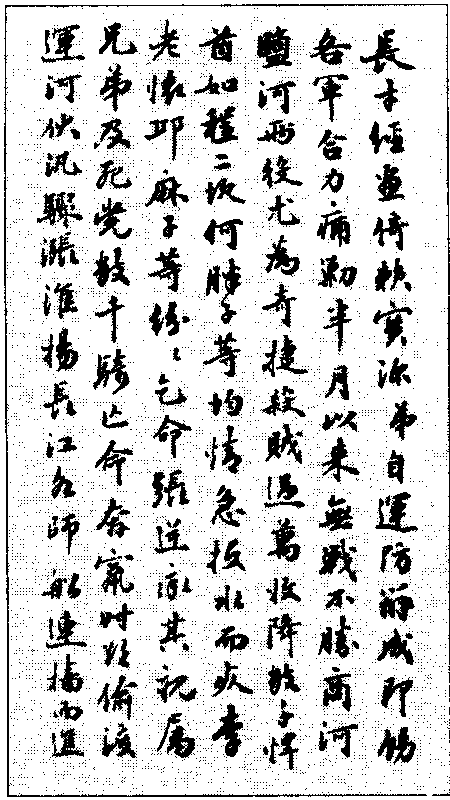 長才經畫倚賴實深弟自運防辦成即飭
各軍合力痛剿半月以來無戰不勝商河
鹽河兩役尤為奇捷殺賊過萬收降數千悍
酋如程二坎何胖子等均情急投水而李
老懷邱麻子等紛紛乞命張逆其親屬
兄弟及死黨數千騎亡命奔竄時欲偷渡
運河伏汛驟漲淮揚長江水師船連檣而進